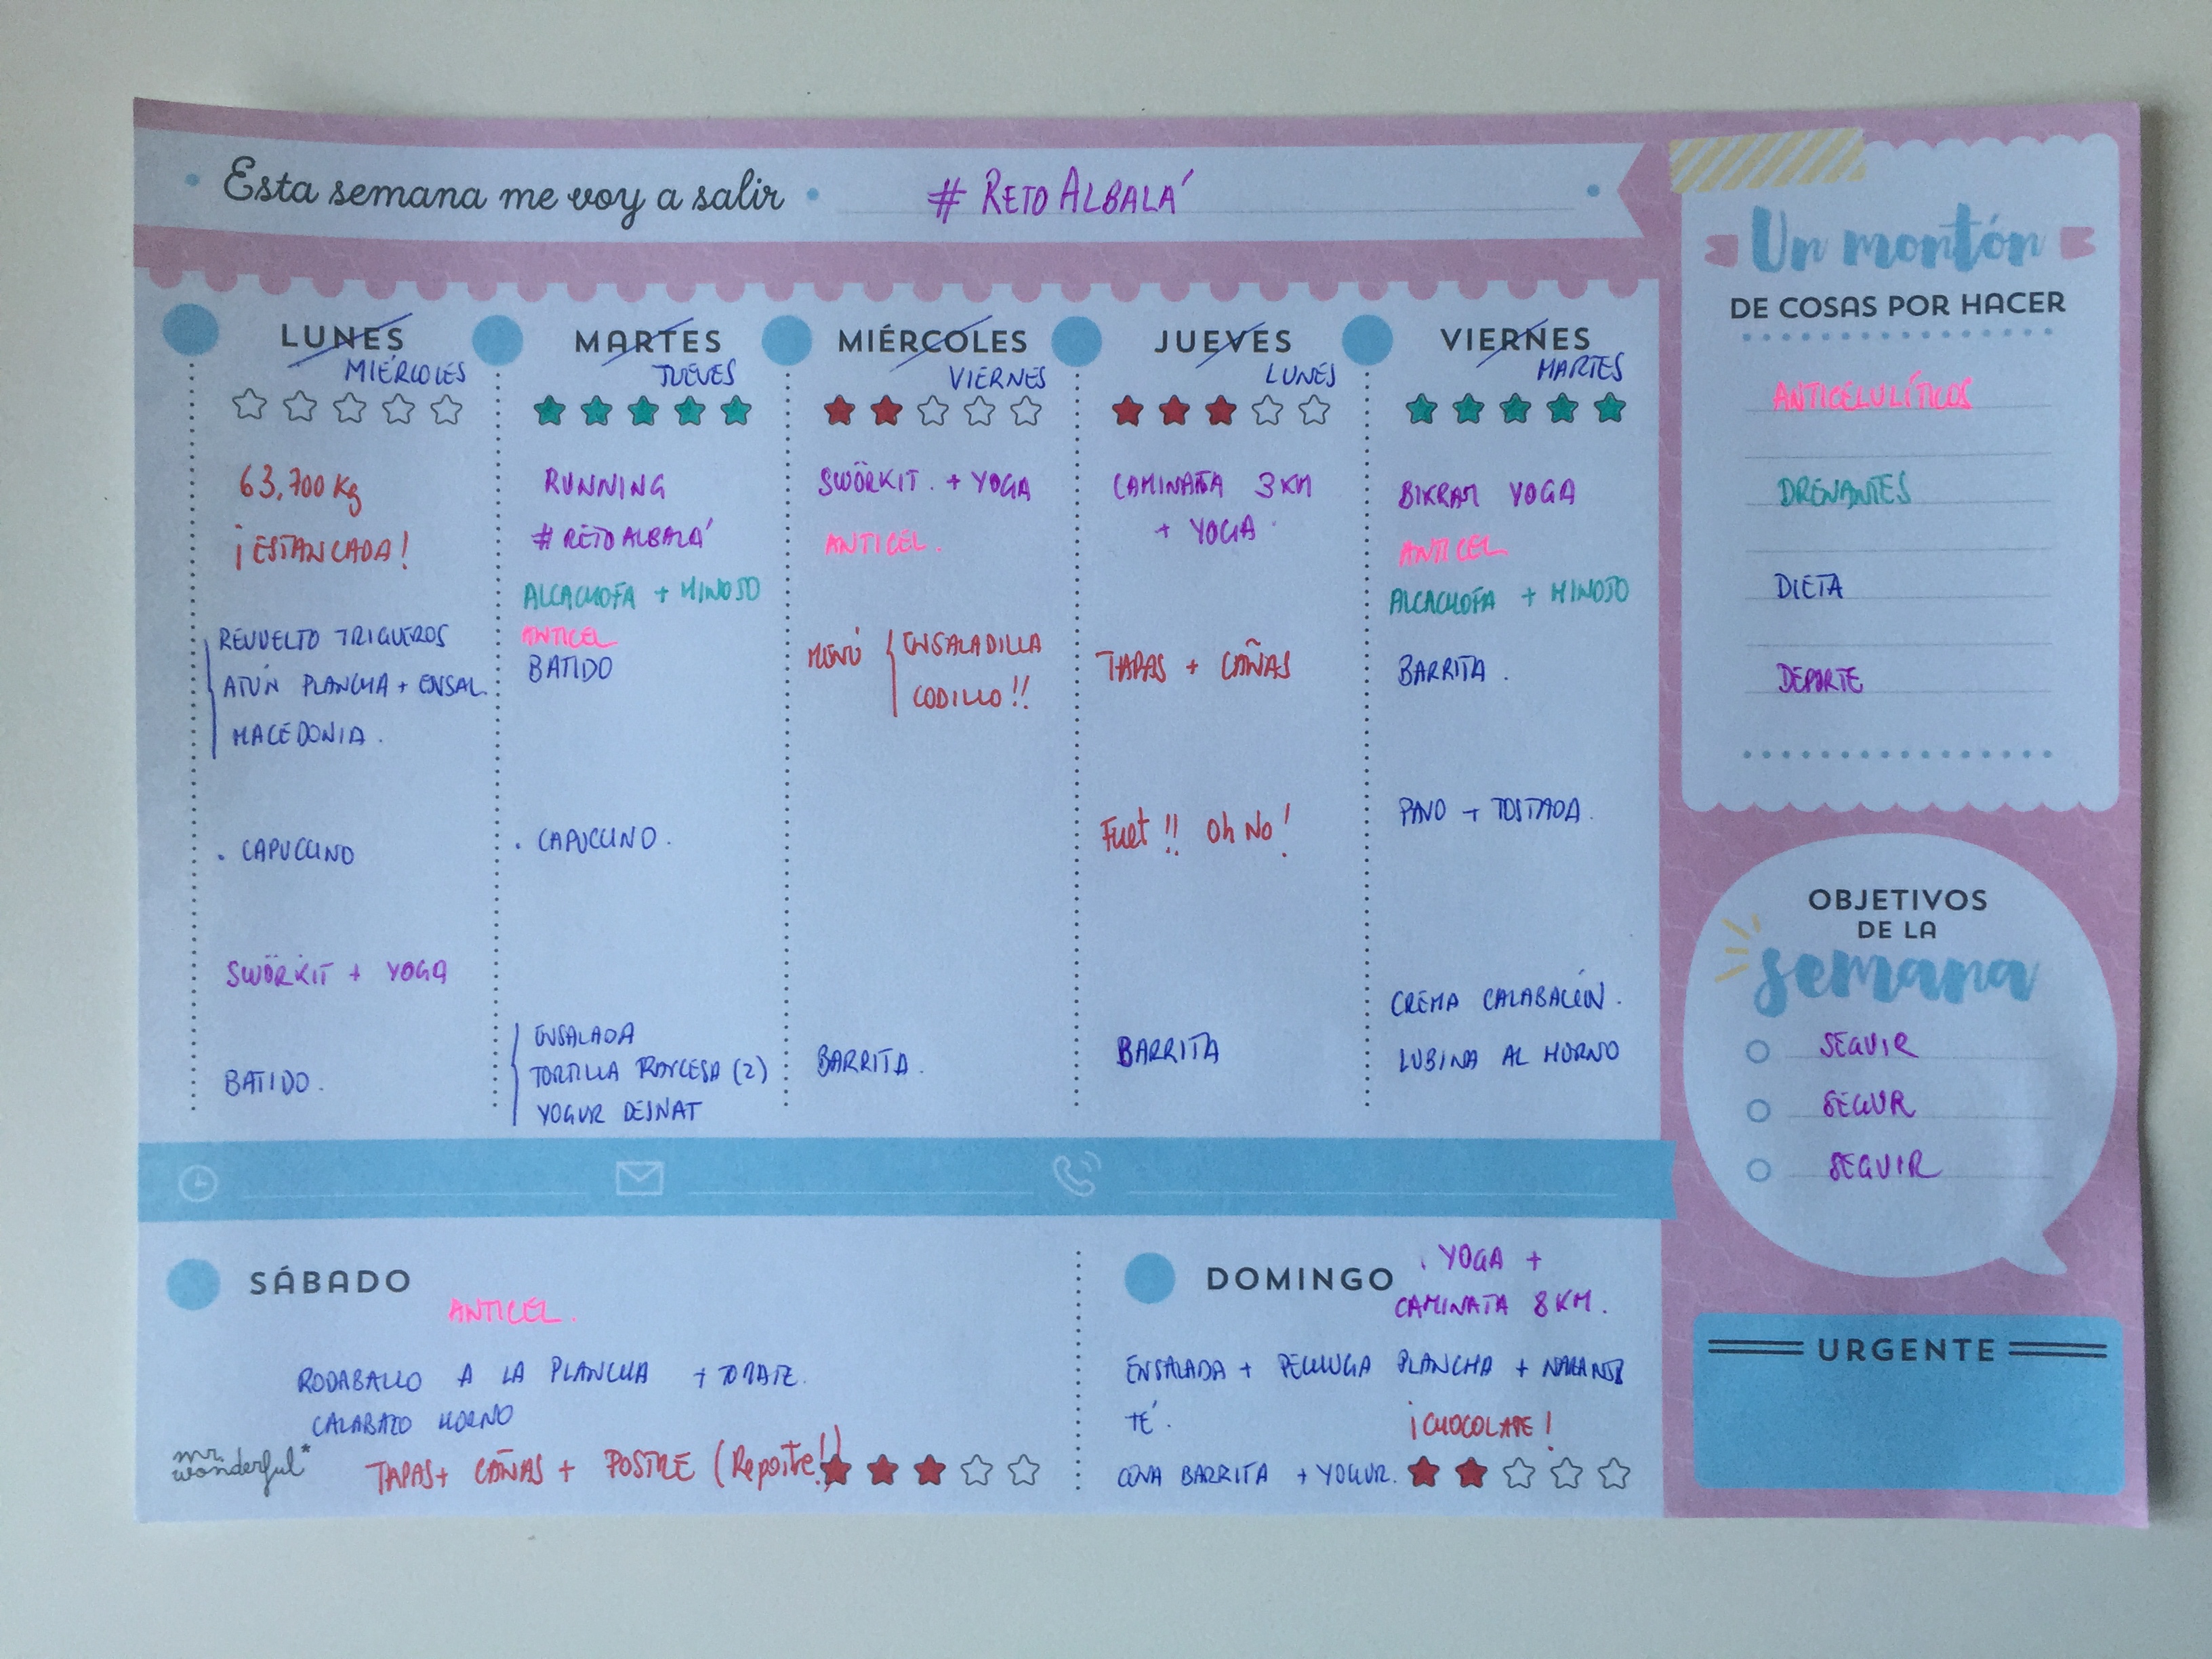 Esta semana me voy a salir # RETO ALBALÁ
LUNES
MIÉRCOLES
63,700 Kg
¡ESTANCADA!
REVUELTO TRIGUEROS
ATÚN PLANCHA + ENSAL.
MACEDONIA.
. CAPUCCINO
SWORKIT + YOGA
BATIDO.
MARTES
JUEVES
RUNNING
# RETO ALBALÁ
ALCACHOFA + HINOJO
ANTICEL
BATIDO
. CAPUCCINO.
ENSALADA
TORTILLA FRANCESA (2)
YOGUR DESNAT
MIÉRCOLES
VIERNES
SWORKIT. + YOGA
ANTICEL.
MENÚ { ENSALADILLA
CODILLO!!
BARRITA.
JUEVES
LUNES
CAMINATA 3KM
+ YOGA.
TAPAS + CAÑAS
Fuet!! Oh No!
BARRITA
VIERNES
MARTES
BIKRAM YOGA
ANTICEL
ALCACHOFA + HINOJO
BARRITA.
PAVO + TOSTADA.
CREMA CALABACÍN.
LUBINA AL HORNO
SÁBADO
ANTICEL.
RODABALLO A LA PLANCHA + TOMATE.
CALABAZO HORNO
TAPAS + CAÑAS + POSTRE (Reposte!)
mr. wonderful*
DOMINGO
. YOGA +
CAMINATA 8KM.
ENSALADA + PECHUGA PLANCHA +
TÉ.
¡CHOCOLATE!
BARRITA + YOGUR.
Un montón
DE COSAS POR HACER
ANTICELULÍTICOS
DRENANTES
DIETA
DEPORTE
OBJETIVOS
DE LA
semana
SEGUIR
SEGUIR
SEGUIR
URGENTE